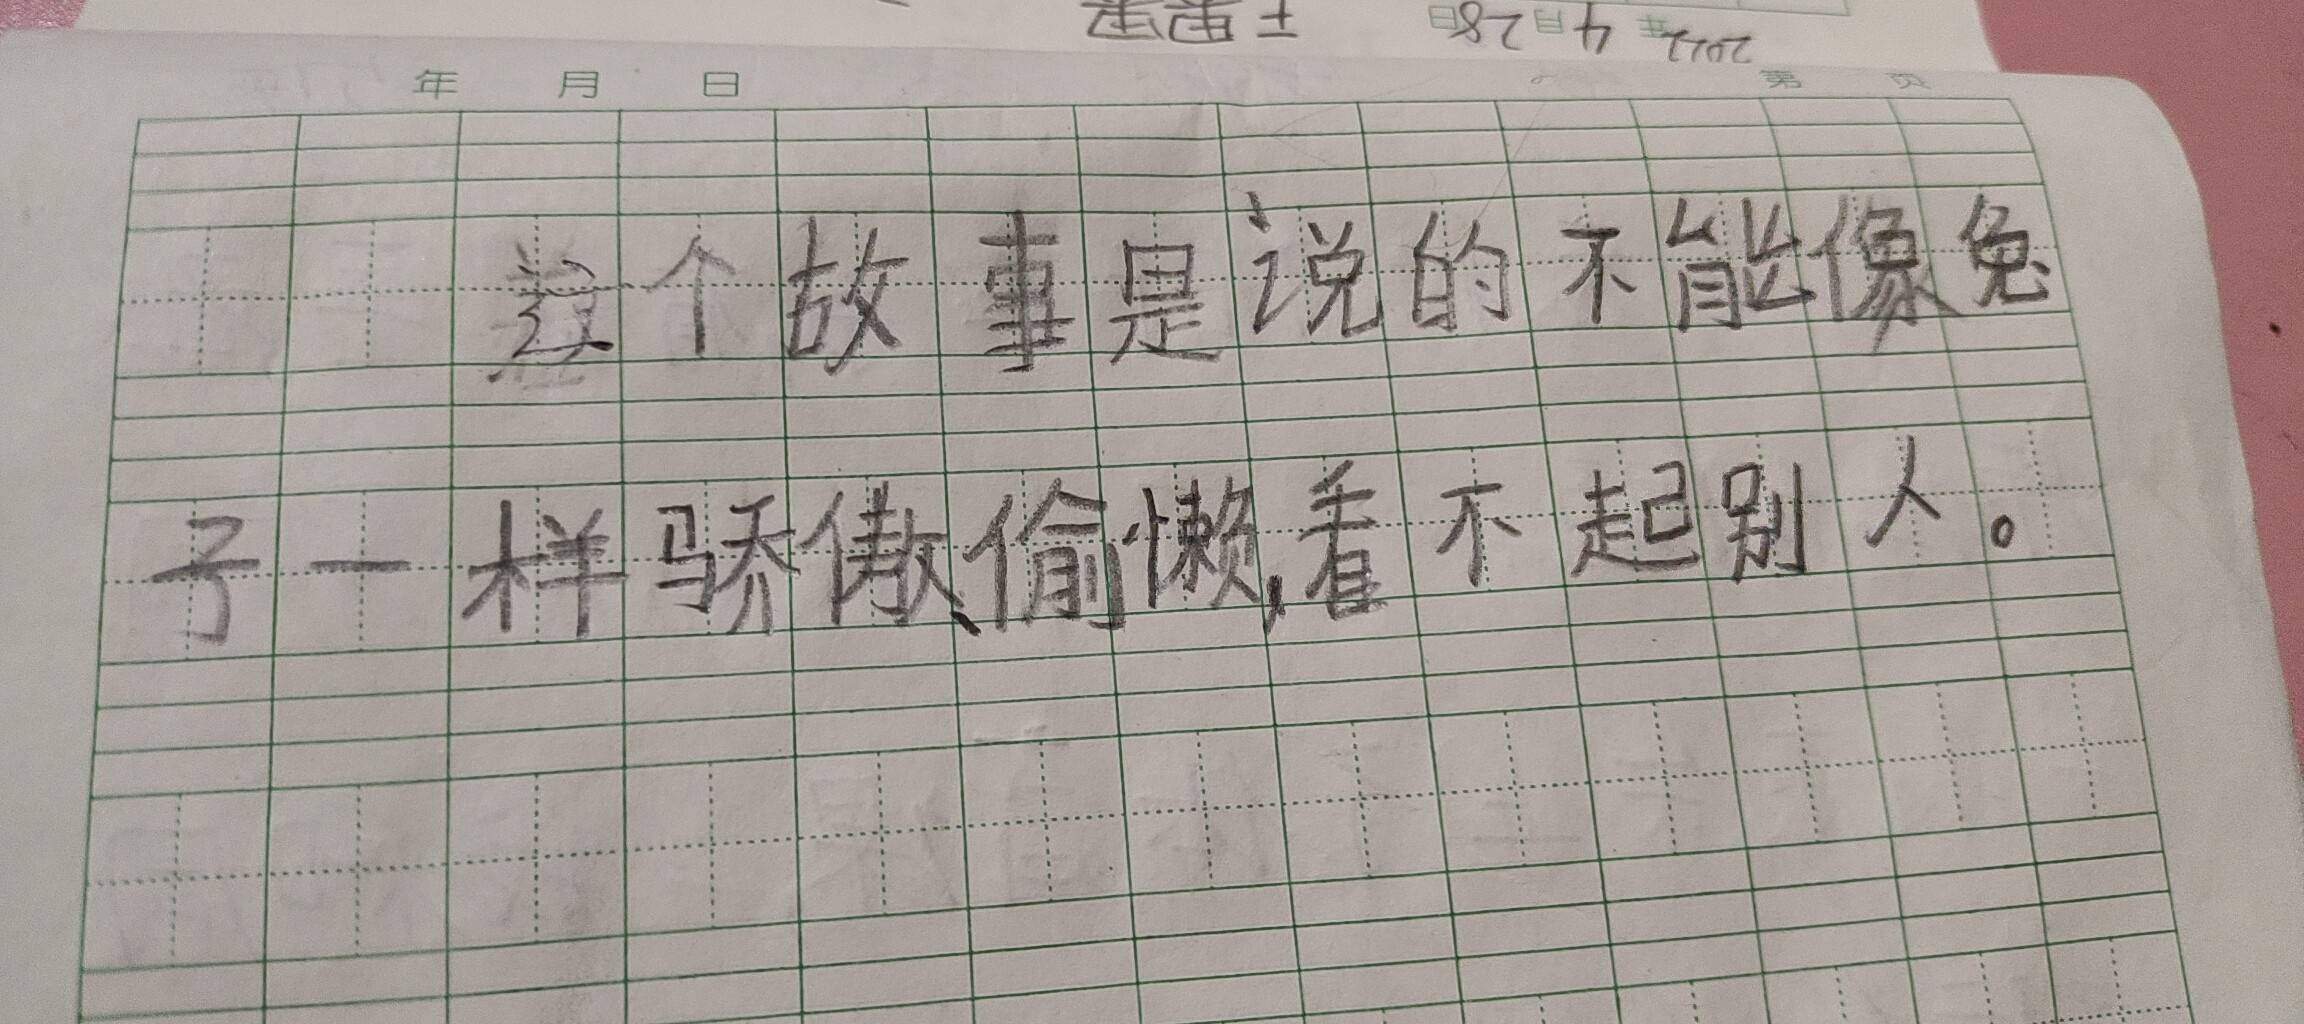 2022年4月28日
年 月 日 第 页
这个故事是说的不能像兔
子一样骄傲、偷懒,看不起别人。